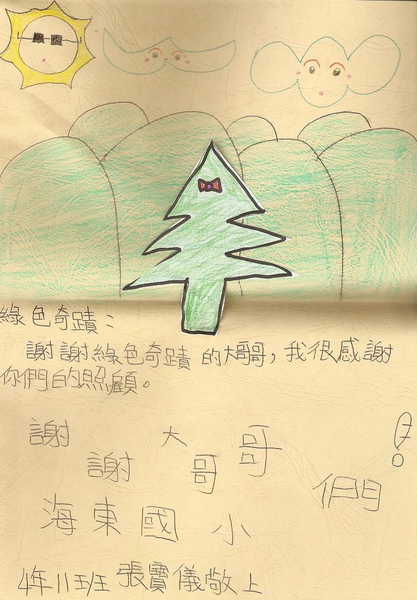 綠色奇蹟：
謝謝綠色奇蹟的大哥哥，我很感謝
你們的照顧。
謝謝大哥哥們！
海東國小
4年11班 張寶儀敬上